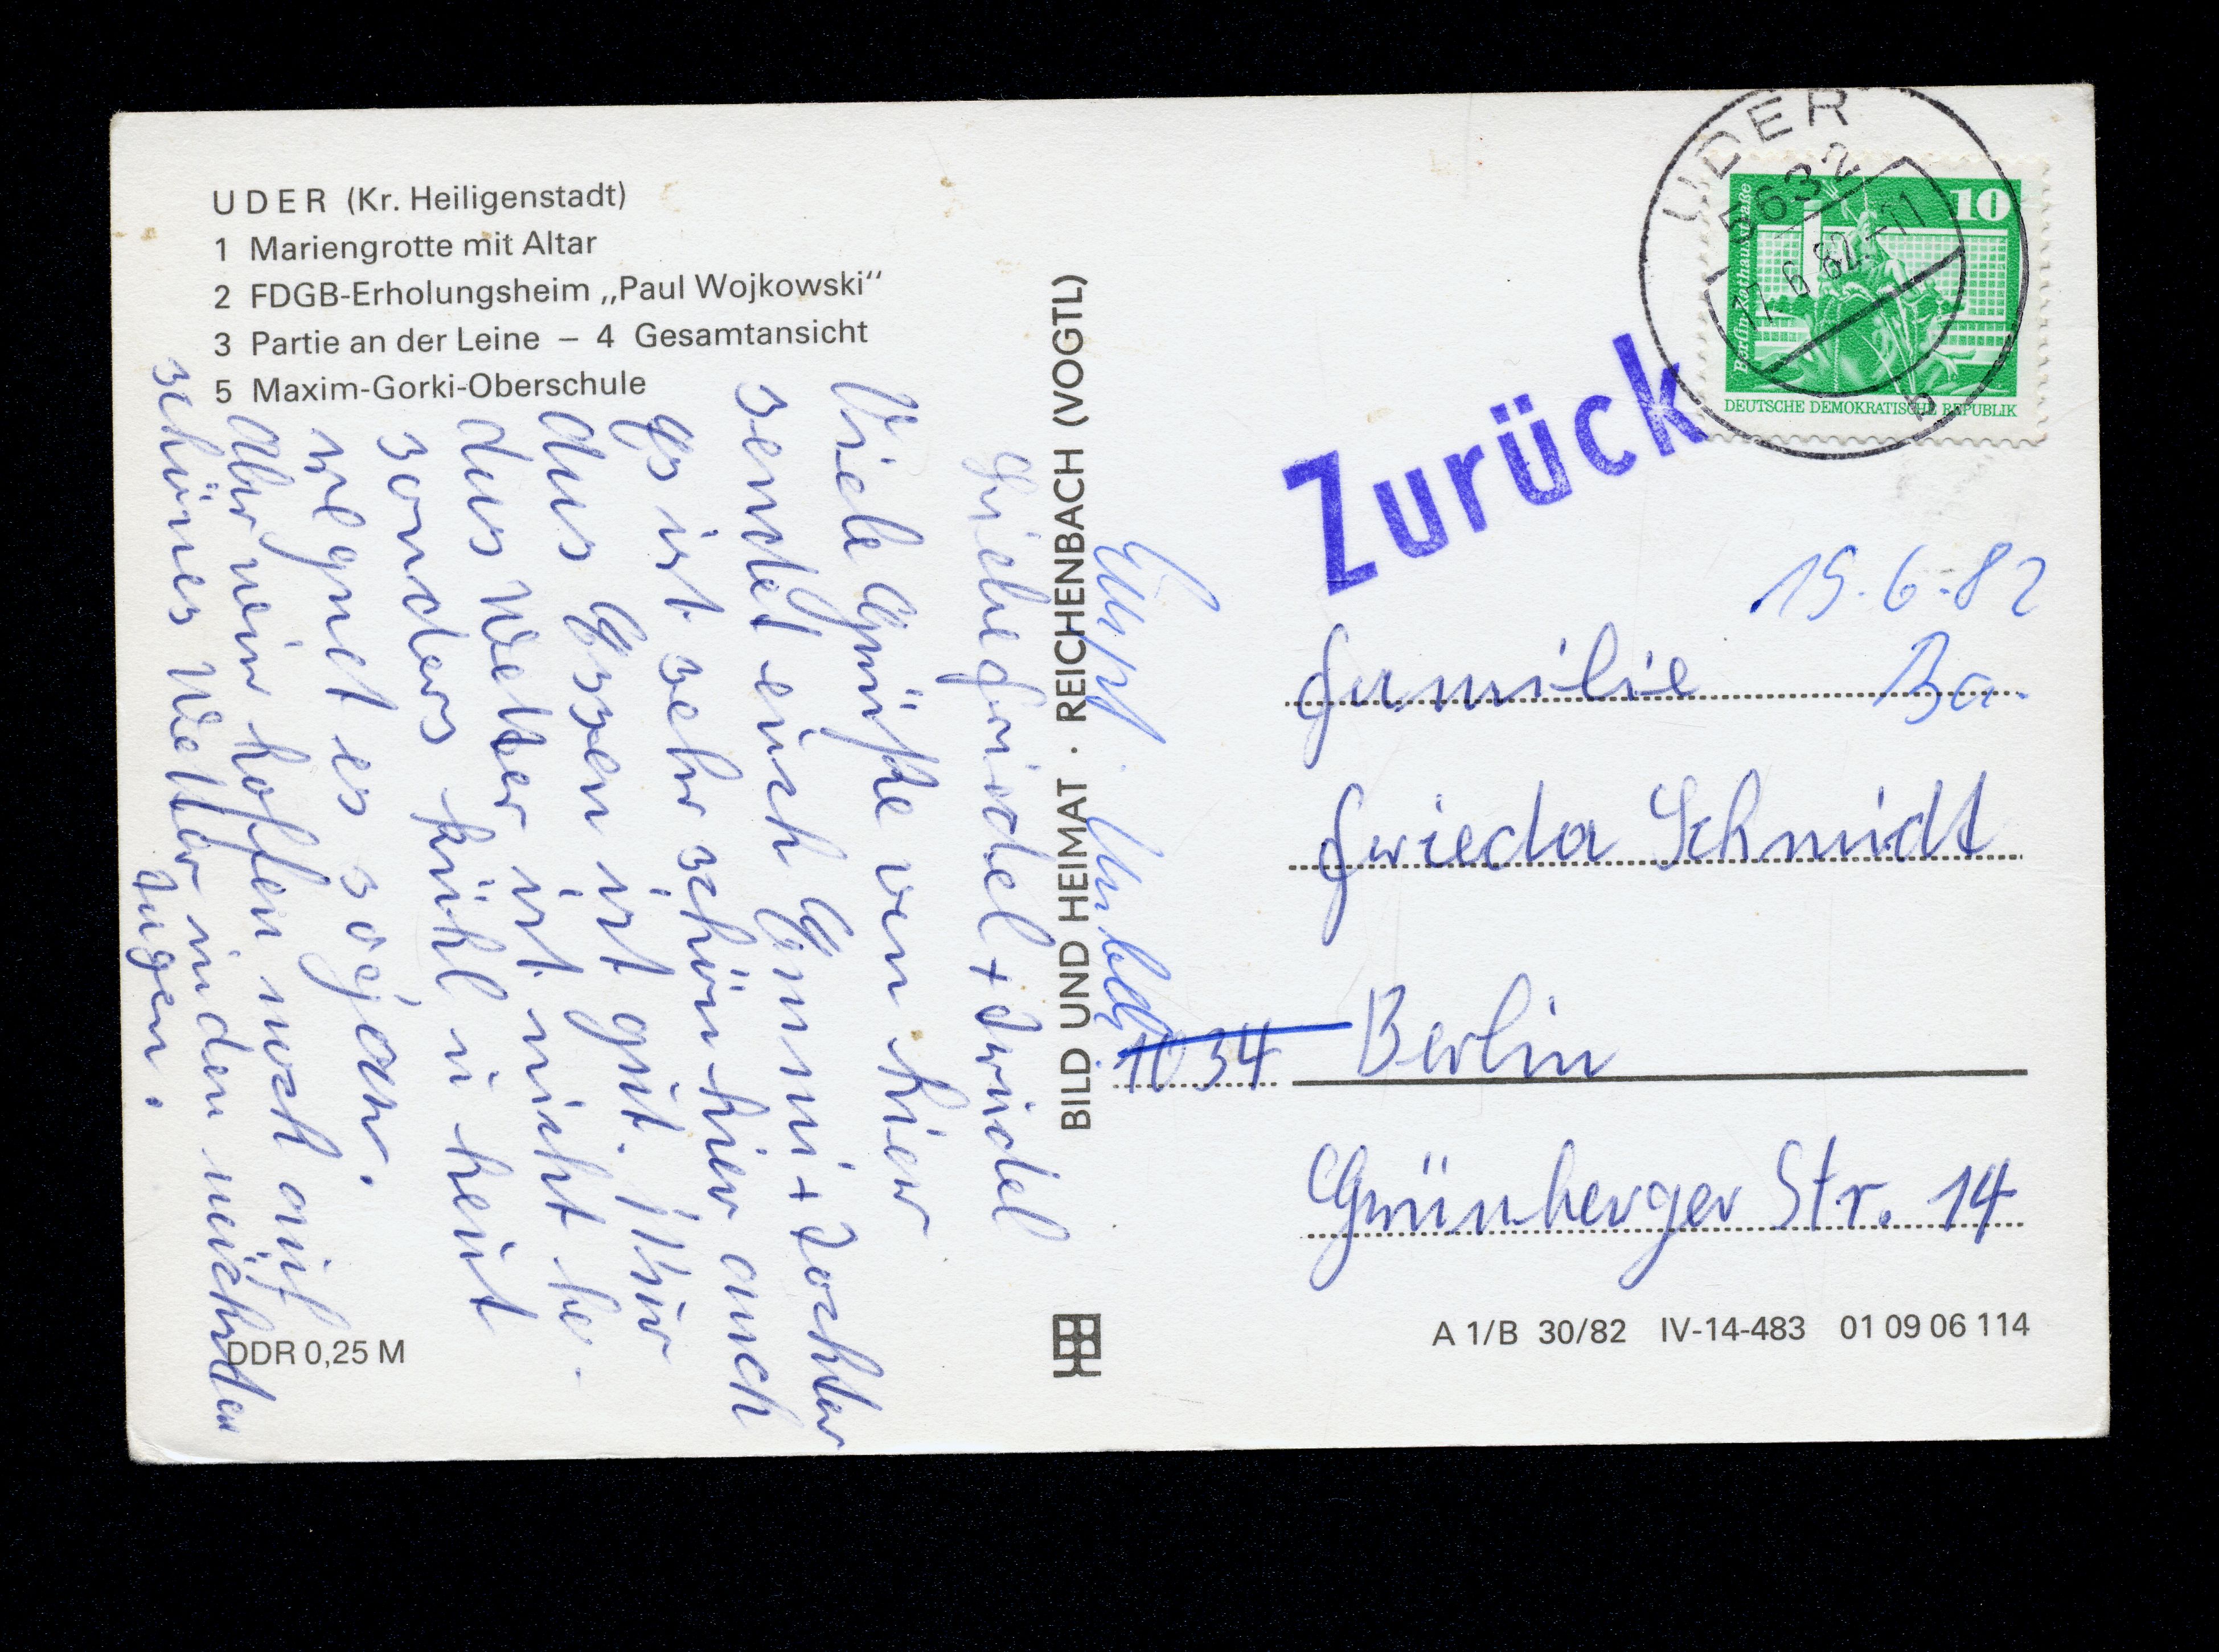 UDER (Kr. Heiligenstadt)
1 Mariengrotte mit Altar
2 FDGB-Erholungsheim „Paul Wojkowski“
3 Partie an der Leine – 4 Gesamtansicht
5 Maxim-Gorki-Oberschule
Viele Grüße von hier
sendet euch +Tochter
Es ist sehr schön hier auch
das Essen ist gut. Nur
das Wetter ist nicht be-
sonders kühl u heut
regnet es sogar.
aber wir hoffen noch auf
schönes Wetter in den nächsten
tagen.
DDR 0,25 M
BILD UND HEIMAT · REICHENBACH (VOGTL)
Empf. Unbek.
UDER
5632
6.82.-11
b
10
Berlin, Rathausstraße
DEUTSCHE DEMOKRATISCHE REPUBLIK
Zurück
15.6.82
Familie
Frieda Schmidt
1034 Berlin
Grünberger Str. 14
A 1/B 30/82 IV-14-483 01 09 06 114